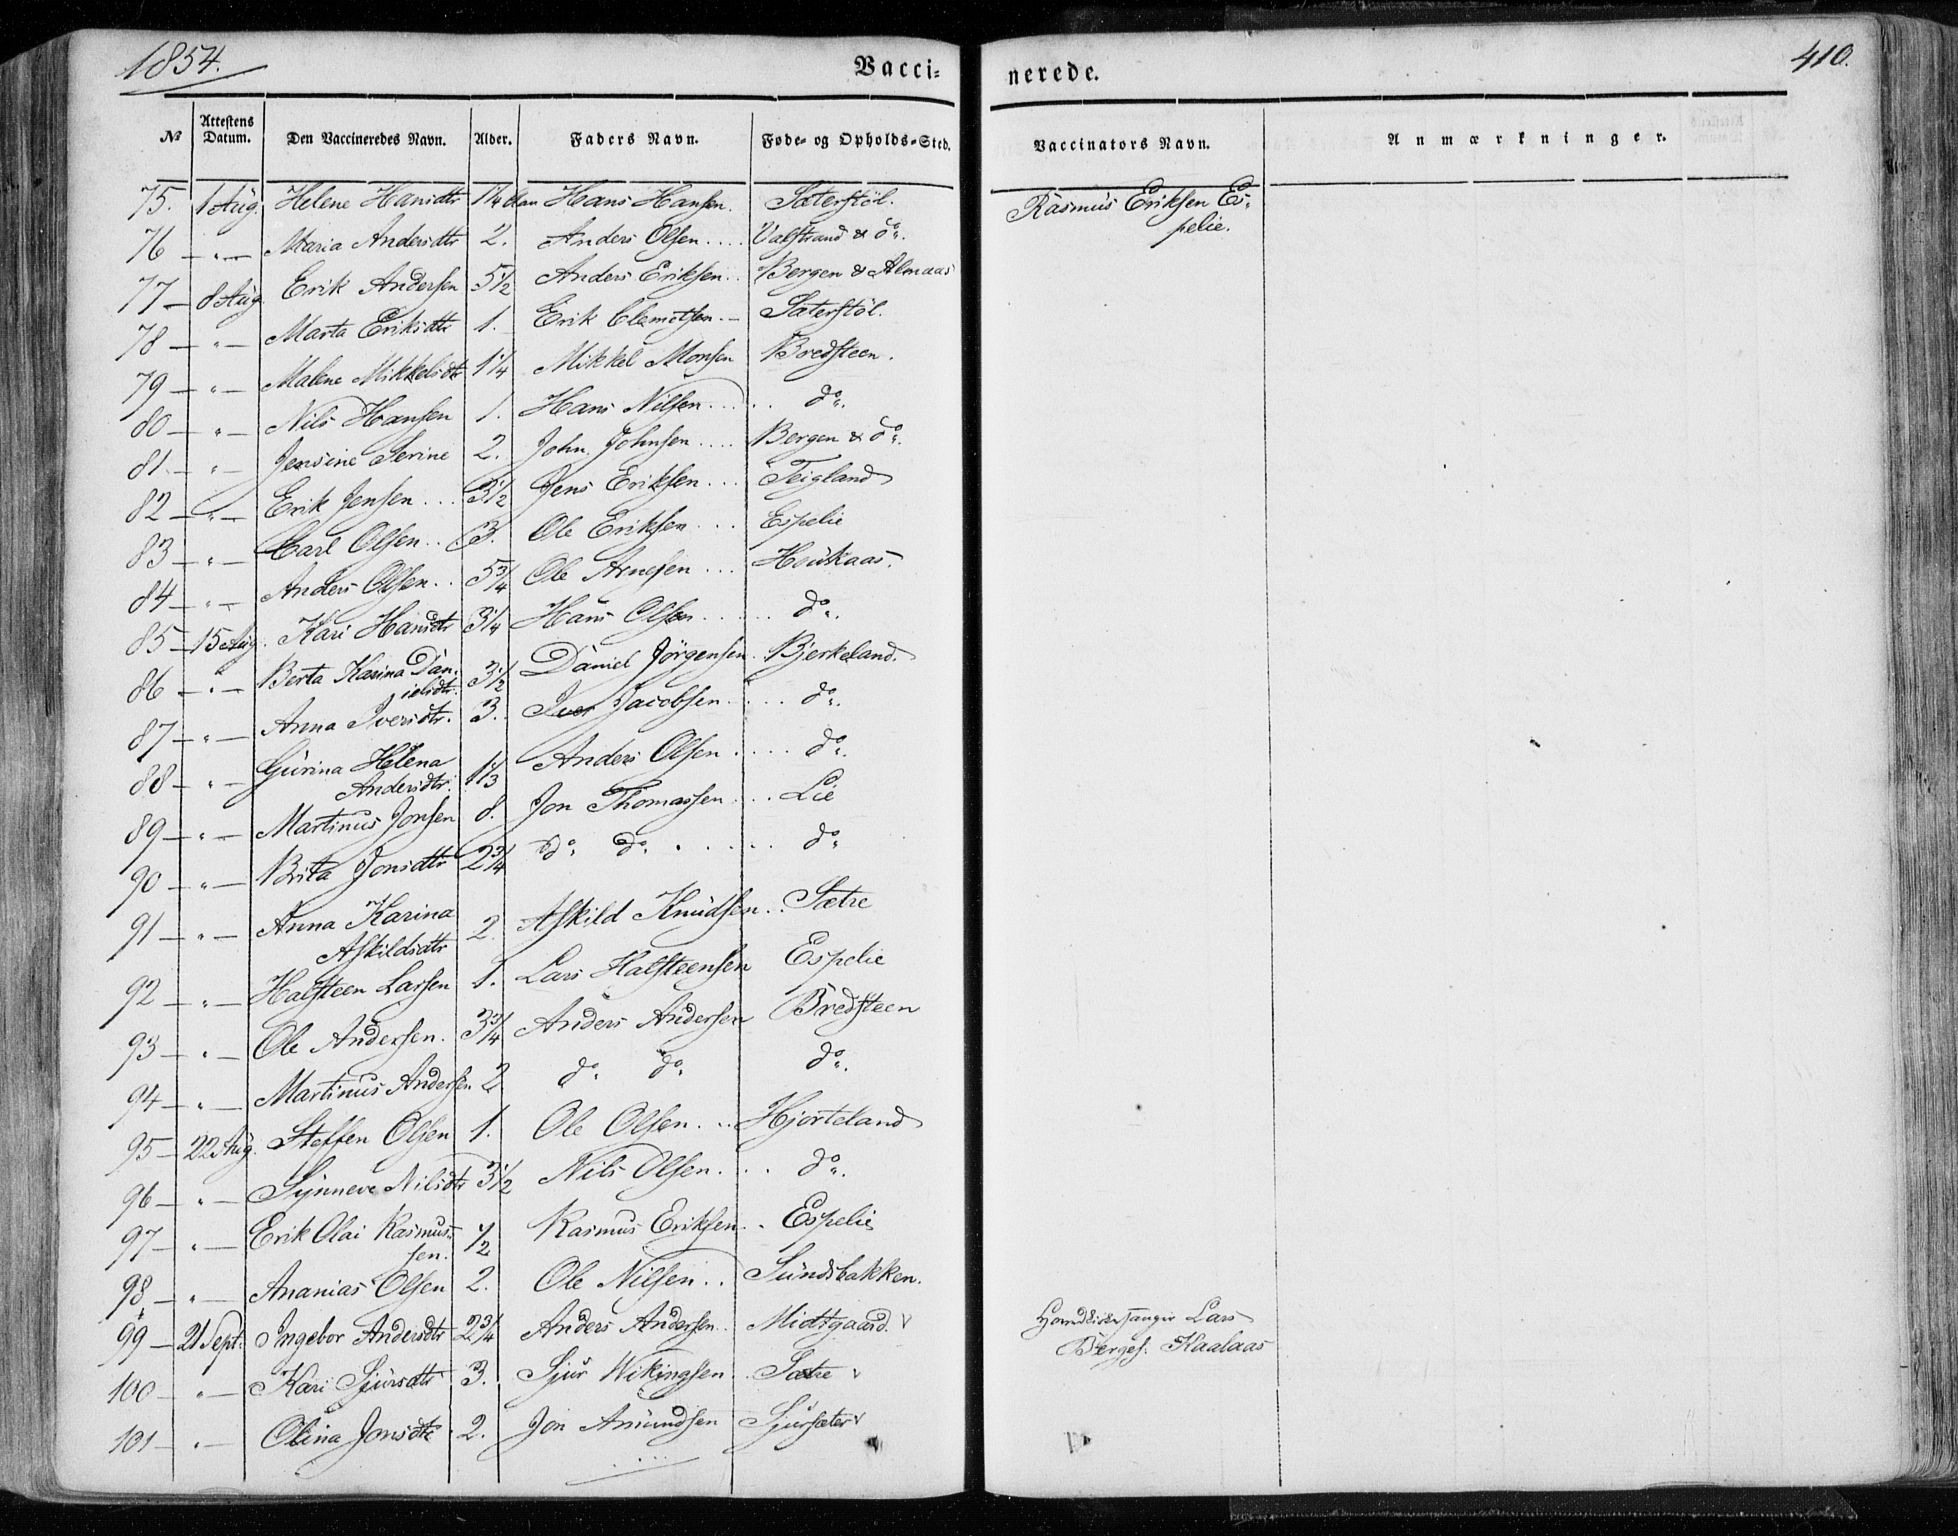 1854. Vacci- nerede. 410.
No Attestens Datum. Den Vaccineredes Navn. Alder. Faders Navn. Føde- og Opholds-Sted. Vaccinators Navn. Anmærkninger.
75. 1 Aug. Helene Hansdtr 1 1/4 Hans Hansen. Sæterstöl. Rasmus Eriksen Es-
76 " Maria Andersdtr 2. Anders Olsen .... Valstrand & do. pelie.
77 8 Aug Erik Andersen 5 1/2 Anders Eriksen .. Bergen & Almaas
78 " Marta Eriksdtr 1. Erik Clemetsen. Sæterstöl.
79 " Malene Mikkelsdtr 1 1/4 Mikkel Monsen Bredsteen.
80 " Nils Hansen 1. Hans Nilsen ..... do.
81. " Jensine Serine 2. John Johnsen .... Bergen & do.
82 " Erik Jensen ... 3 1/2 Jens Eriksen ... Teigland
83 " Carl Olsen .. 3. Ole Eriksen ... Espelie
84 " Anders Olsen .. 5 3/4 Ole Arnesen ... Houkaas.
85 15 Aug. Kari Hansdtr 3 1/4 Hans Olsen ..... do.
86 " Berta Karina Dan- 3 1/2 Daniel Jörgensen. Bjerkeland.
ielsdtr.
87 " Anna Iversdtr. 3. Iver Jacobsen .... do.
88 " Gurina Helena 1 1/3 Anders Olsen .... do.
Andersdtr.
89 " Martinus Jonsen 8. Jon Thomassen .... Lie
90 " Brita Jonsdtr 2 3/4 do. do. .... do
91 " Anna Karina 2. Askild Knudsen .. Sætre
Askildsdtr
92 " Halsteen Larsen 1. Lars Halsteensen Espelie
93 " Ole Andersen. 3 3/4 Anders Andersen Bredsteen
94 " Martinus Andersen 2 do. do. do.
95 22 Aug. Steffen Olsen 1. Ole Olsen ... Hjorteland
96 " Synneve Nilsdtr 3 1/2 Nils Olsen .... do.
97 " Erik Olai Rasmus- 1/2 Rasmus Eriksen .. Espelie
sen.
98 " Ananias Olsen 2. Ole Nilsen .. Sundsbakken.
99 21 Sept. Ingebor Andersdtr 2 3/4 Anders Andersen. Midtgaard. Lars
100 " Kari Sjursdtr 3. Sjur Wikingsen. Sætre Börges. Kaalaas
101 " Olina Jonsdtr 2. Jon Amundsen Sjursæter